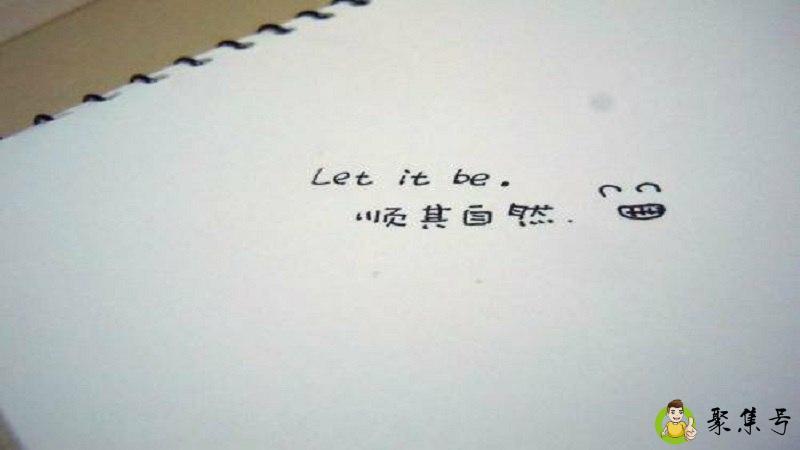 Let it be.
顺其自然.
聚集号